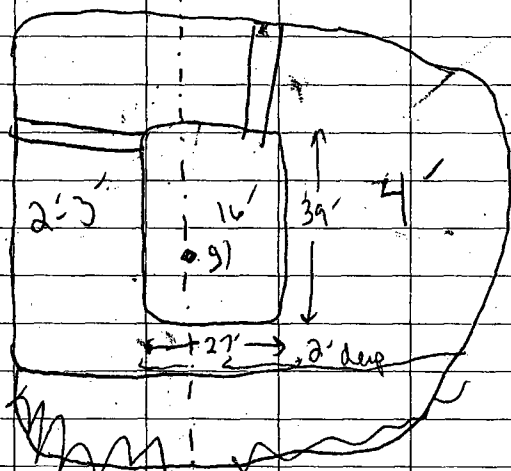 2'-3'
16'
39'
4'
91
27'
2' deep